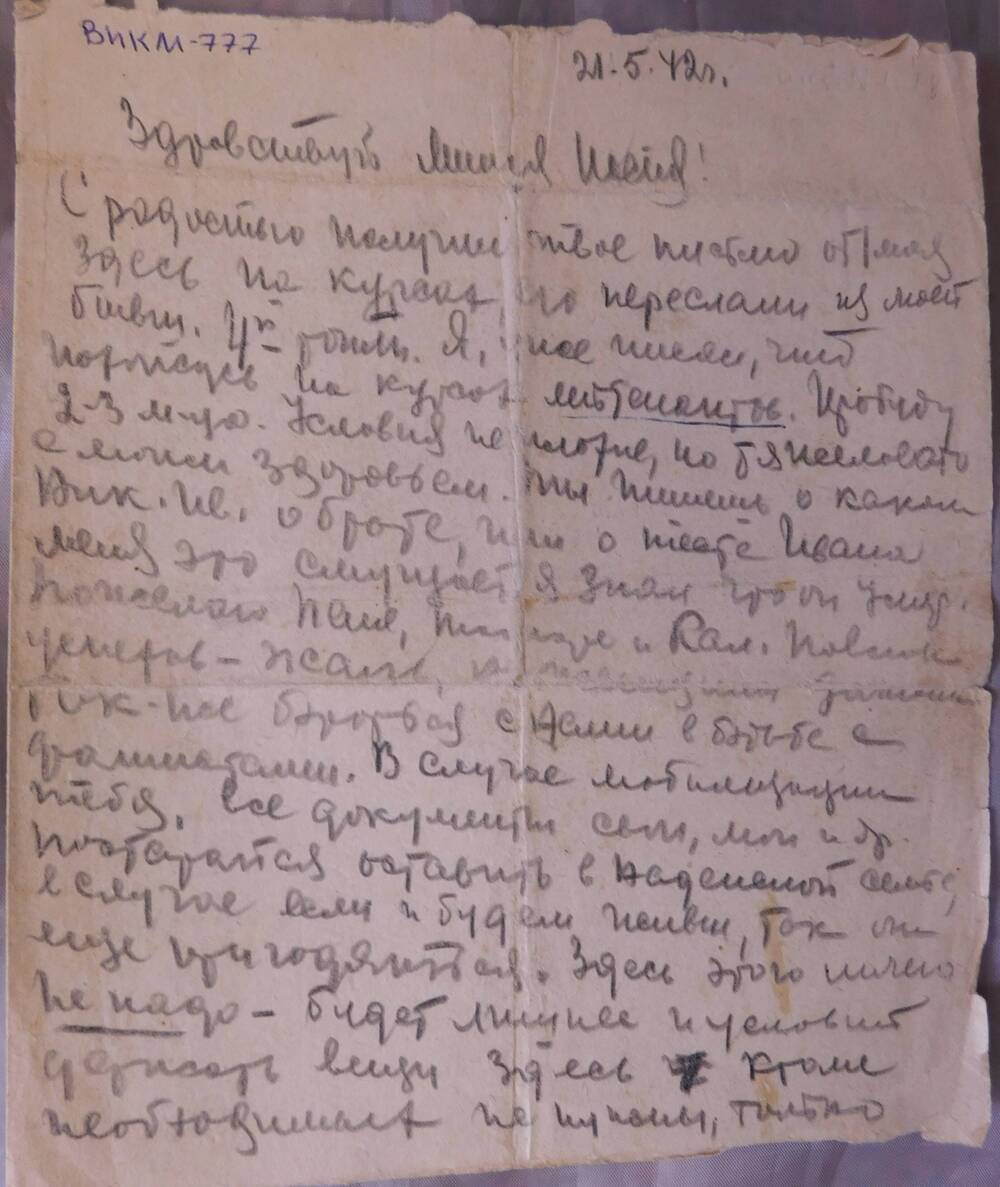 ВИКМ-777
21.5.42г.
Здравствуй милая
С радостью получил твое письмо от
Здесь на курсах его переслали из моей
бывш. Я, уже писал, что
нахожусь на курсах лейтенантов. Пробуду
2-3 м-ца. Условия не плохие, но тяжеловато
с моим здоровьем. Ты пишешь о каком
Вик. Ив. о брате, или о Ивана
меня это смущает я знал что он умер.
и Вал.
умеров – жаль, к
бороться с нами в борьбе с
фашистами. В случае мобилизации
тебя, все документы свои, мои и др.
постарайся оставить в надежной семье,
в случае если и будем живы, так они
еще пригодятся. Здесь этого ничего
не надо – будет лишнее и условий
держать вещи здесь кроме
необходимых не нужны, только